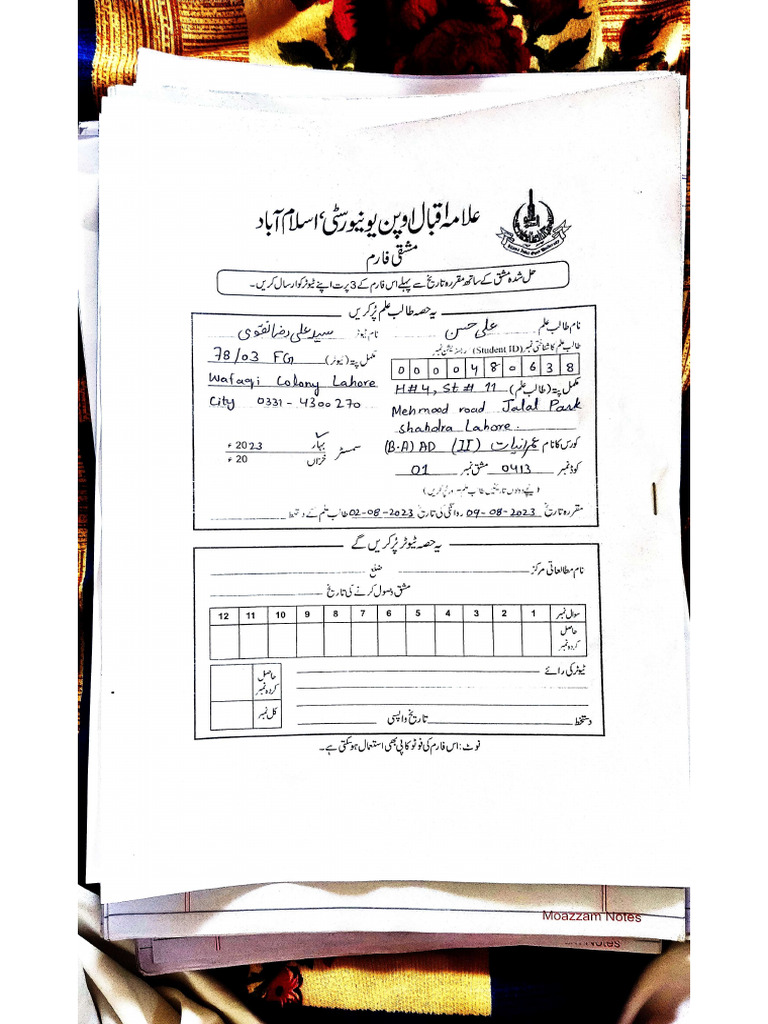 علامہ اقبال اوپن یونیورسٹی، اسلام آباد
مشقی فارم
حل شدہ مشق کے ساتھ مقررہ تاریخ سے پہلے اس فارم کے 3 پرت اپنے ٹیوٹر کو ارسال کریں۔
یہ حصہ طالب علم پُر کریں
نام طالب علم علی حسن نام ٹیوٹر سید علی رضا نقوی
طالب علم کا شناختی نمبر (Student ID) رجسٹریشن نمبر
0 0 0 0 4 8 0 6 3 8
مکمل پتہ (ٹیوٹر) 78/03 FG
Wafaqi Colony Lahore
City 0331-4300270
مکمل پتہ (طالب علم) H#4, St# 11
Mehmood road Jalal Park
shahdra Lahore.
کورس کا نام عمرانیات (II) (B.A) AD
سمسٹر بہار 2023ء
خزاں 20ء
کوڈ نمبر 0413 مشق نمبر 01
(نیچے دونوں تاریخیں طالب علم پُر کریں)
مقررہ تاریخ 09-08-2023 روانگی کی تاریخ 02-08-2023 طالب علم کے دستخط
یہ حصہ ٹیوٹر پُر کریں گے
نام مطالعاتی مرکز ضلع
مشق وصول کرنے کی تاریخ
سوال نمبر 1 2 3 4 5 6 7 8 9 10 11 12
حاصل کردہ نمبر
ٹیوٹر کی رائے
حاصل کردہ نمبر
کل نمبر
دستخط تاریخ واپسی
نوٹ: اس فارم کی فوٹو کاپی بھی استعمال ہو سکتی ہے۔
Moazzam Notes
Notes